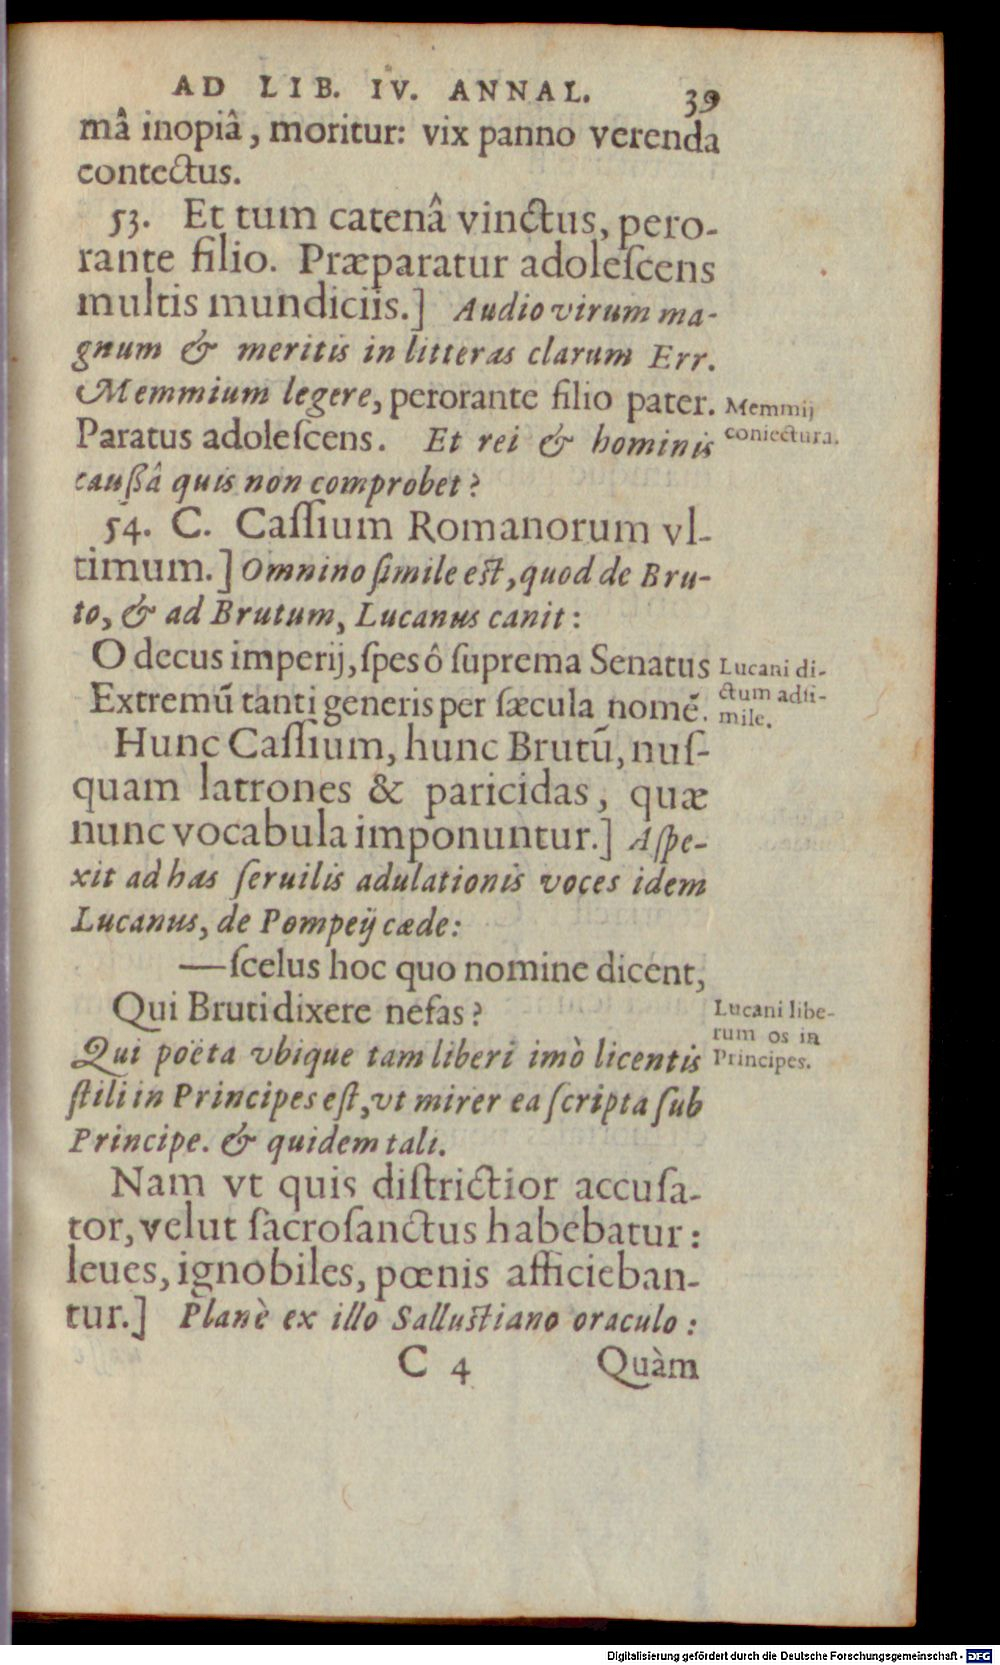 AD LIB. IV. ANNAL. 39
mâ inopiâ, moritur: vix panno verenda
contectus.
53. Et tum catenâ vinctus, pero-
rante filio. Præparatur adoleſcens
multis mundiciis.] Audio virum ma-
gnum & meritis in litteras clarum Err.
Memmium legere, perorante filio pater.
Memmij
Paratus adoleſcens. Et rei & hominis
coniectura.
cauſsâ quis non comprobet?
54. C. Caſſium Romanorum vl-
timum.] Omnino ſimile eſt, quod de Bru-
to, & ad Brutum, Lucanus canit:
O decus imperij, ſpes ô ſuprema Senatus
Lucani di-
Extremũ tanti generis per ſæcula nomẽ.
ctum adſi-
mile.
Hunc Caſſium, hunc Brutũ, nuſ-
quam latrones & paricidas, quæ
nunc vocabula imponuntur.] Aſpe-
xit ad has ſeruilis adulationis voces idem
Lucanus, de Pompeij cæde:
—ſcelus hoc quo nomine dicent,
Qui Bruti dixere nefas?
Lucani libe-
rum os in
Principes.
Qui poëta vbique tam liberi imò licentis
ſtili in Principes eſt, vt mirer ea ſcripta ſub
Principe. & quidem tali.
Nam vt quis diſtrictior accuſa-
tor, velut ſacroſanctus habebatur:
leues, ignobiles, pœnis afficieban-
tur.] Planè ex illo Salluſtiano oraculo:
C 4 Quàm
Digitalisierung gefördert durch die Deutsche Forschungsgemeinschaft - DFG